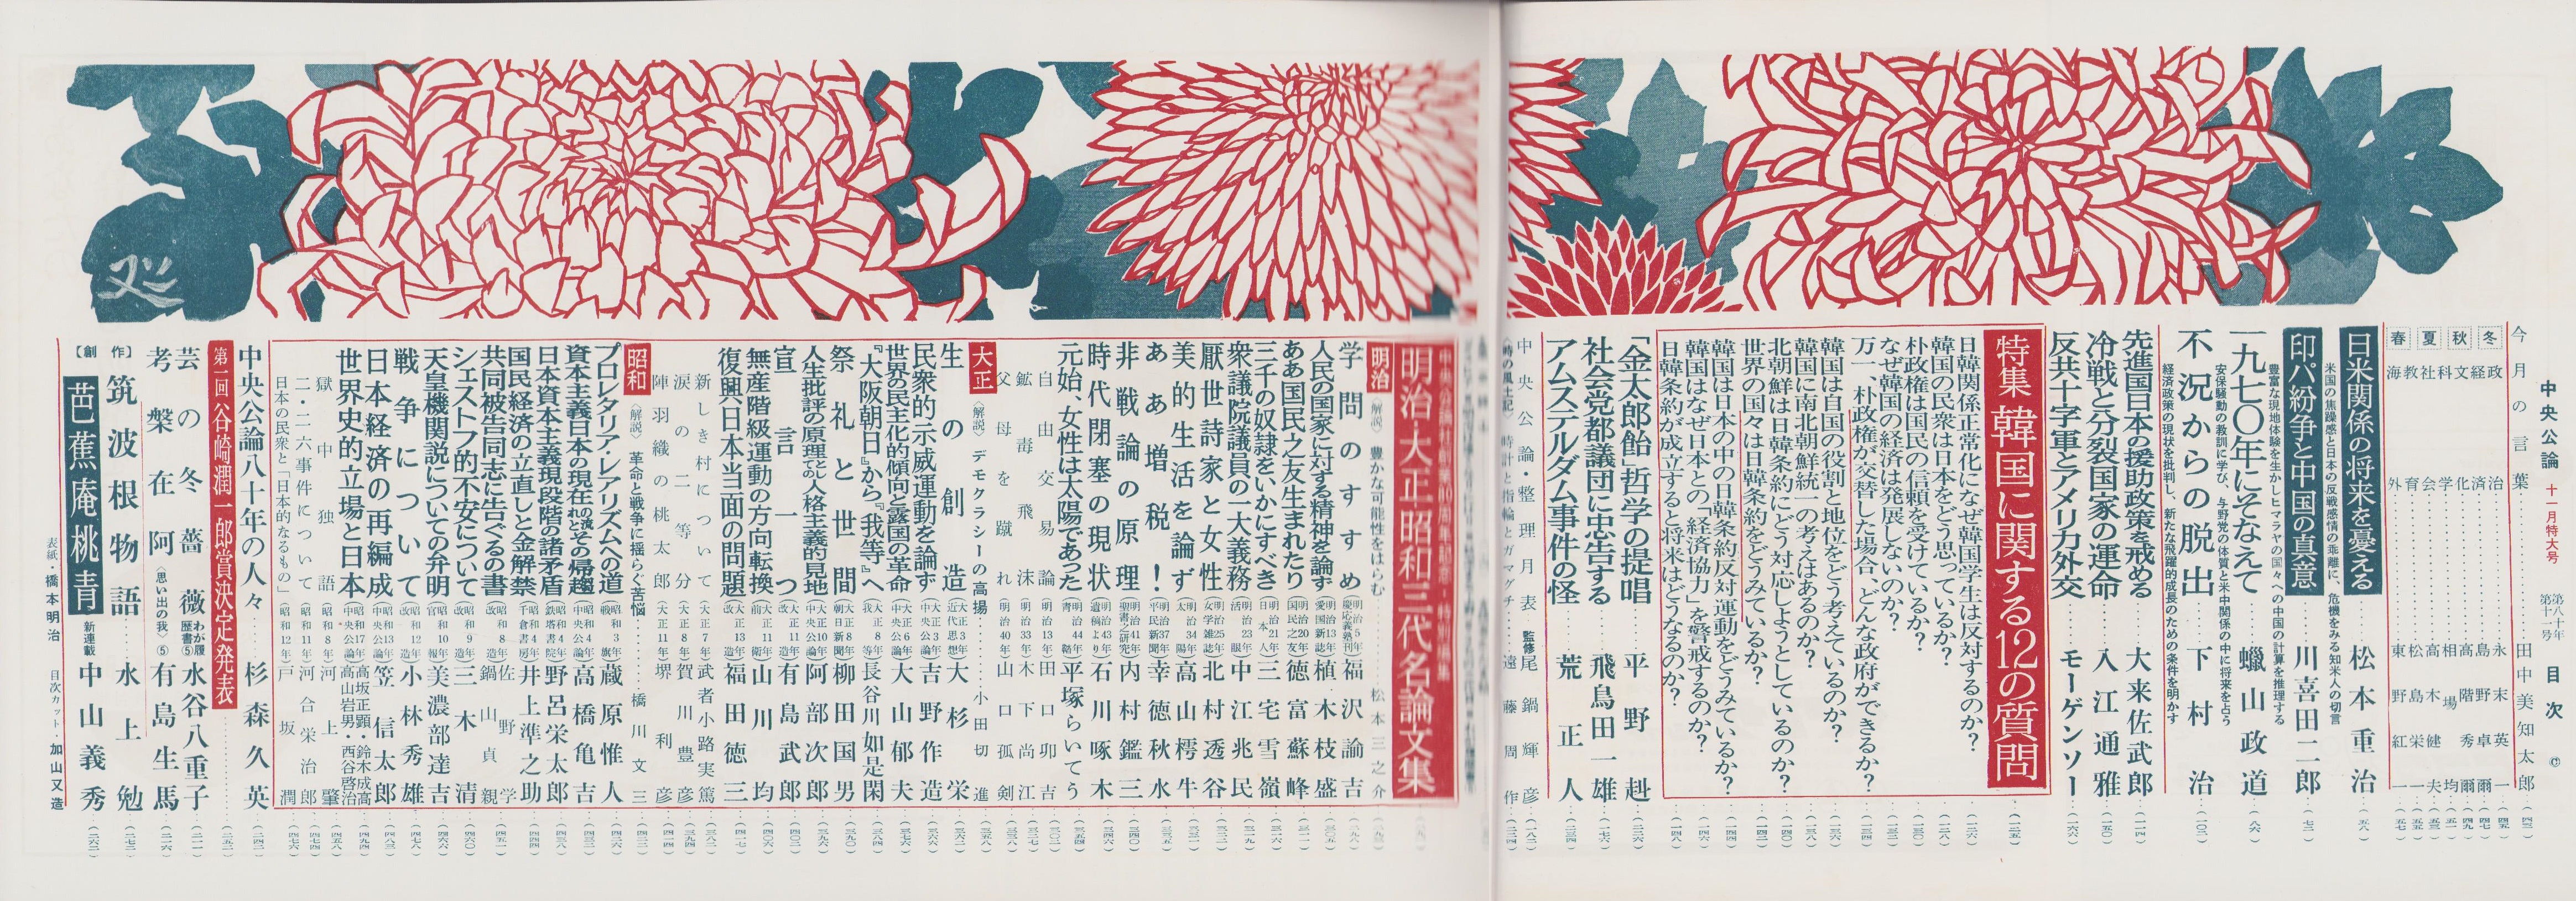 中央公論 十一月特大号 第八十年 第十一号 目次 ©
今月の言葉 田中美知太郎 (四三)
冬 政治 永末英一 (四五)
経済 島野卓爾 (四七)
秋 文化 高階秀爾 (四九)
科学 相場均 (五一)
夏 社会 高木健夫 (五三)
教育 松島栄一 (五五)
春 海外 東野紅一 (五七)
日米関係の将来を憂える 松本重治 (五八)
米国の焦躁感と日本の反戦感情の乖離に、危機をみる知米人の切言
印パ紛争と中国の真意 川喜田二郎 (七二)
豊富な現地体験を生かしヒマラヤの国々への中国の計算を推理する
一九七〇年にそなえて 蠟山政道 (八六)
安保騒動の教訓に学び、与野党の体質と米中関係の中に将来を占う
不況からの脱出 下村治 (一〇二)
経済政策の現状を批判し、新たな飛躍的成長のための条件を明かす
先進国日本の援助政策を戒める 大来佐武郎 (一一四)
冷戦と分裂国家の運命 入江通雅 (一五〇)
反共十字軍とアメリカ外交 モーゲンソー (一六六)
特集 韓国に関する12の質問 (一二五)
日韓関係正常化になぜ韓国学生は反対するのか? (一二六)
韓国の民衆は日本をどう思っているか? (一二八)
朴政権は国民の信頼を受けているか? (一三〇)
なぜ韓国の経済は発展しないのか? (一三二)
万一、朴政権が交替した場合、どんな政府ができるか? (一三四)
韓国は自国の役割と地位をどう考えているのか? (一三六)
韓国に南北朝鮮統一の考えはあるのか? (一三八)
北朝鮮は日韓条約にどう対応しようとしているのか? (一四〇)
世界の国々は日韓条約をどうみているか? (一四二)
韓国は日本の中の日韓条約反対運動をどうみているか? (一四四)
韓国はなぜ日本との「経済協力」を警戒するのか? (一四六)
日韓条約が成立すると将来はどうなるのか? (一四八)
「金太郎飴」哲学の提唱 平野赳 (二二六)
社会党都議団に忠告する 飛鳥田一雄 (一七六)
アムステルダム事件の怪 荒正人 (二三四)
中央公論・整理月表 監修 尾鍋輝彦 (一八二)
〈時の風土記〉 時計と指輪とガマグチ 遠藤周作 (二二四)
中央公論社創業80周年記念・特別編集
明治・大正・昭和三代名論文集
明治 〈解説〉 豊かな可能性をはらむ 松本三之介
学問のすすめ (明治5年 慶応義塾刊) 福沢諭吉
人民の国家に対する精神を論ず (明治13年 愛国新誌) 植木枝盛
ああ国民之友生まれたり (明治20年 国民之友) 徳富蘇峰 (三一一)
三千の奴隷をいかにすべき (明治21年 日本人) 三宅雪嶺 (三一六)
衆議院議員の一大義務 (明治23年 活眼) 中江兆民 (三一九)
厭世詩家と女性 (明治25年 女学雑誌) 北村透谷 (三二二)
美的生活を論ず (明治34年 太陽) 高山樗牛
ああ増税! (明治37年 平民新聞) 幸徳秋水 (三三五)
非戦論の原理 (明治41年 聖書之研究) 内村鑑三 (三四〇)
時代閉塞の現状 (明治43年 遺稿より) 石川啄木 (三四六)
元始、女性は太陽であった (明治44年 青鞜) 平塚らいてう (三五四)
自由交易論 (明治13年) 田口卯吉
鉱毒飛沫 (明治33年) 木下尚江
父母を蹴れ (明治40年) 山口孤剣 (三三八)
大正 〈解説〉 デモクラシーの高揚 小田切進 (三五八)
生の創造 (大正3年 近代思想) 大杉栄 (三六二)
民衆的示威運動を論ず (大正3年 中央公論) 吉野作造 (三六六)
世界の民主化的傾向と露国の革命 (大正6年 中央公論) 大山郁夫 (三七六)
『大阪朝日』から『我等』へ (大正8年 我等) 長谷川如是閑 (三八四)
祭礼と世間 (大正8年 朝日新聞) 柳田国男 (三九〇)
人生批評の原理としての人格主義的見地 (大正10年 中央公論) 阿部次郎
宣言一つ (大正11年 改造) 有島武郎 (四〇二)
無産階級運動の方向転換 (大正11年 前衛) 山川均 (四〇六)
復興日本当面の問題 (大正13年 改造) 福田徳三 (四一七)
新しき村について (大正7年) 武者小路実篤 (三八二)
涙の二等分 (大正8年) 賀川豊彦 (三九四)
陣羽織の桃太郎 (大正11年) 堺利彦
昭和 〈解説〉 革命と戦争に揺らぐ苦悩 橋川文三
プロレタリア・レアリズムへの道 (昭和3年 戦旗) 蔵原惟人
資本主義日本の現在の流れとその帰趨 (昭和4年 中央公論) 高橋亀吉
日本資本主義現段階の諸矛盾 (昭和4年 鉄塔書院) 野呂栄太郎
国民経済の立直しと金解禁 (昭和4年 千倉書房) 井上準之助
共同被告同志に告ぐるの書 (昭和8年 改造) 佐野学 鍋山貞親
シェストフ的不安について (昭和9年 改造) 三木清 (四六〇)
天皇機関説についての弁明 (昭和10年 官報) 美濃部達吉
戦争について (昭和12年 改造) 小林秀雄 (四七八)
日本経済の再編成 (昭和13年 中央公論) 笠信太郎 (四八二)
世界史的立場と日本 (昭和17年 中央公論) 高坂正顕・鈴木成高 高山岩男・西谷啓治
獄中独語 (昭和8年) 河上肇 (四五八)
二・二六事件について (昭和11年) 河合栄治郎 (四七四)
日本の民衆と「日本的なるもの」 (昭和12年) 戸坂潤 (四七六)
中央公論八十年の人々 杉森久英 (二四二)
第一回 谷崎潤一郎賞決定発表 (二五二)
芸の冬薔薇 わが履歴書⑤ 水谷八重子
考槃在阿 〈思い出の我〉⑤ 有島生馬
【創作】
筑波根物語 水上勉 (二七二)
芭蕉庵桃青 新連載 中山義秀 (二六二)
表紙・橋本明治 目次カット・加山又造